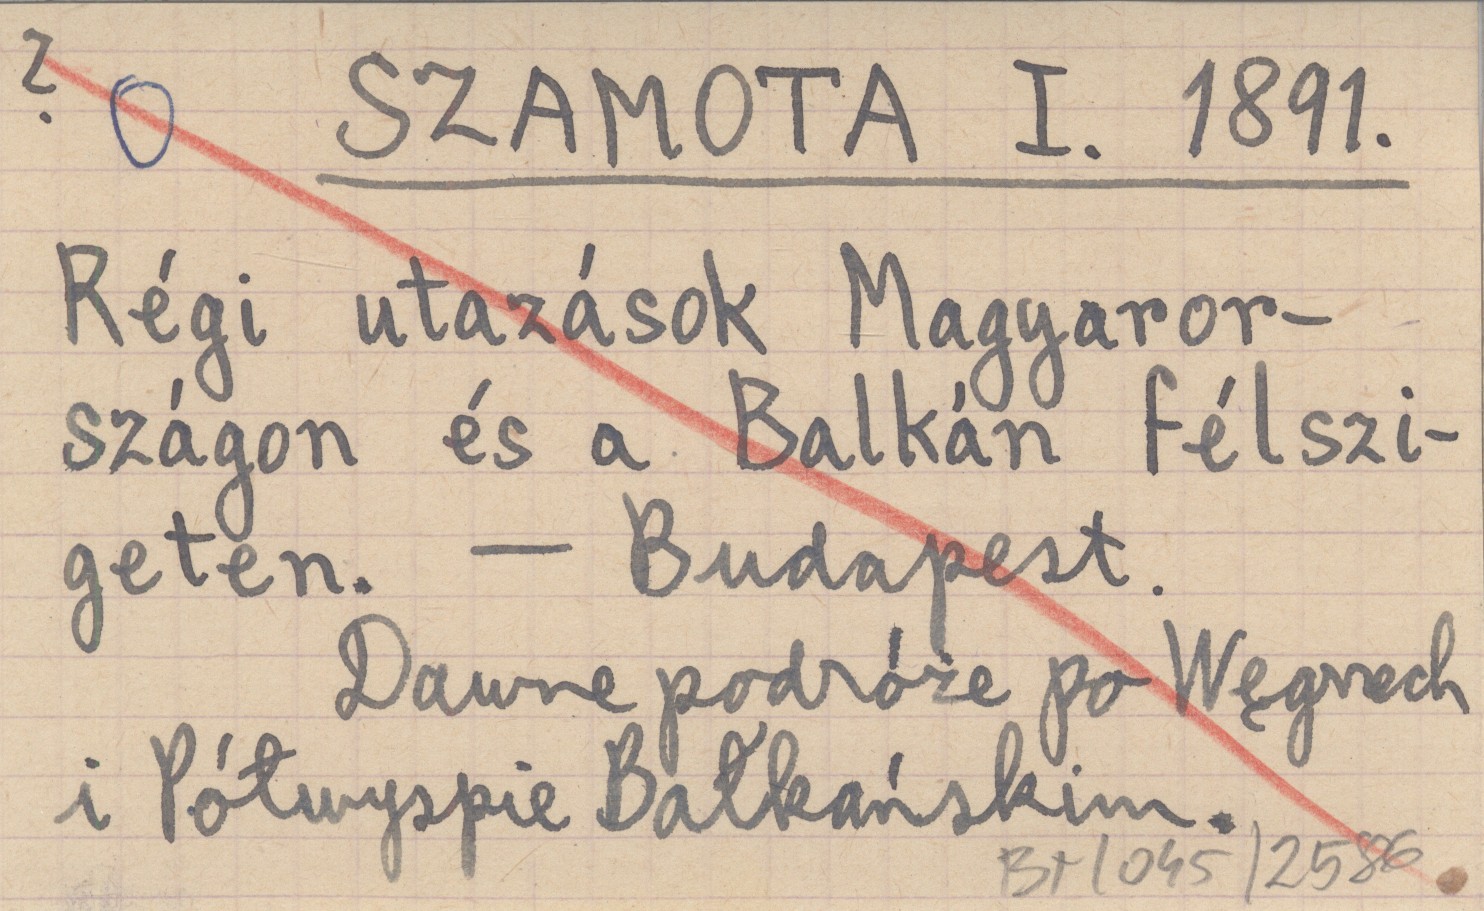 ?
SZAMOTA I. 1891.
Régi utazások Magyaror-
szágon és a Balkán félszi-
geten. — Budapest.
Dawne podróże po Węgrzech
i Półwyspie Bałkańskim.
Br/045/2586